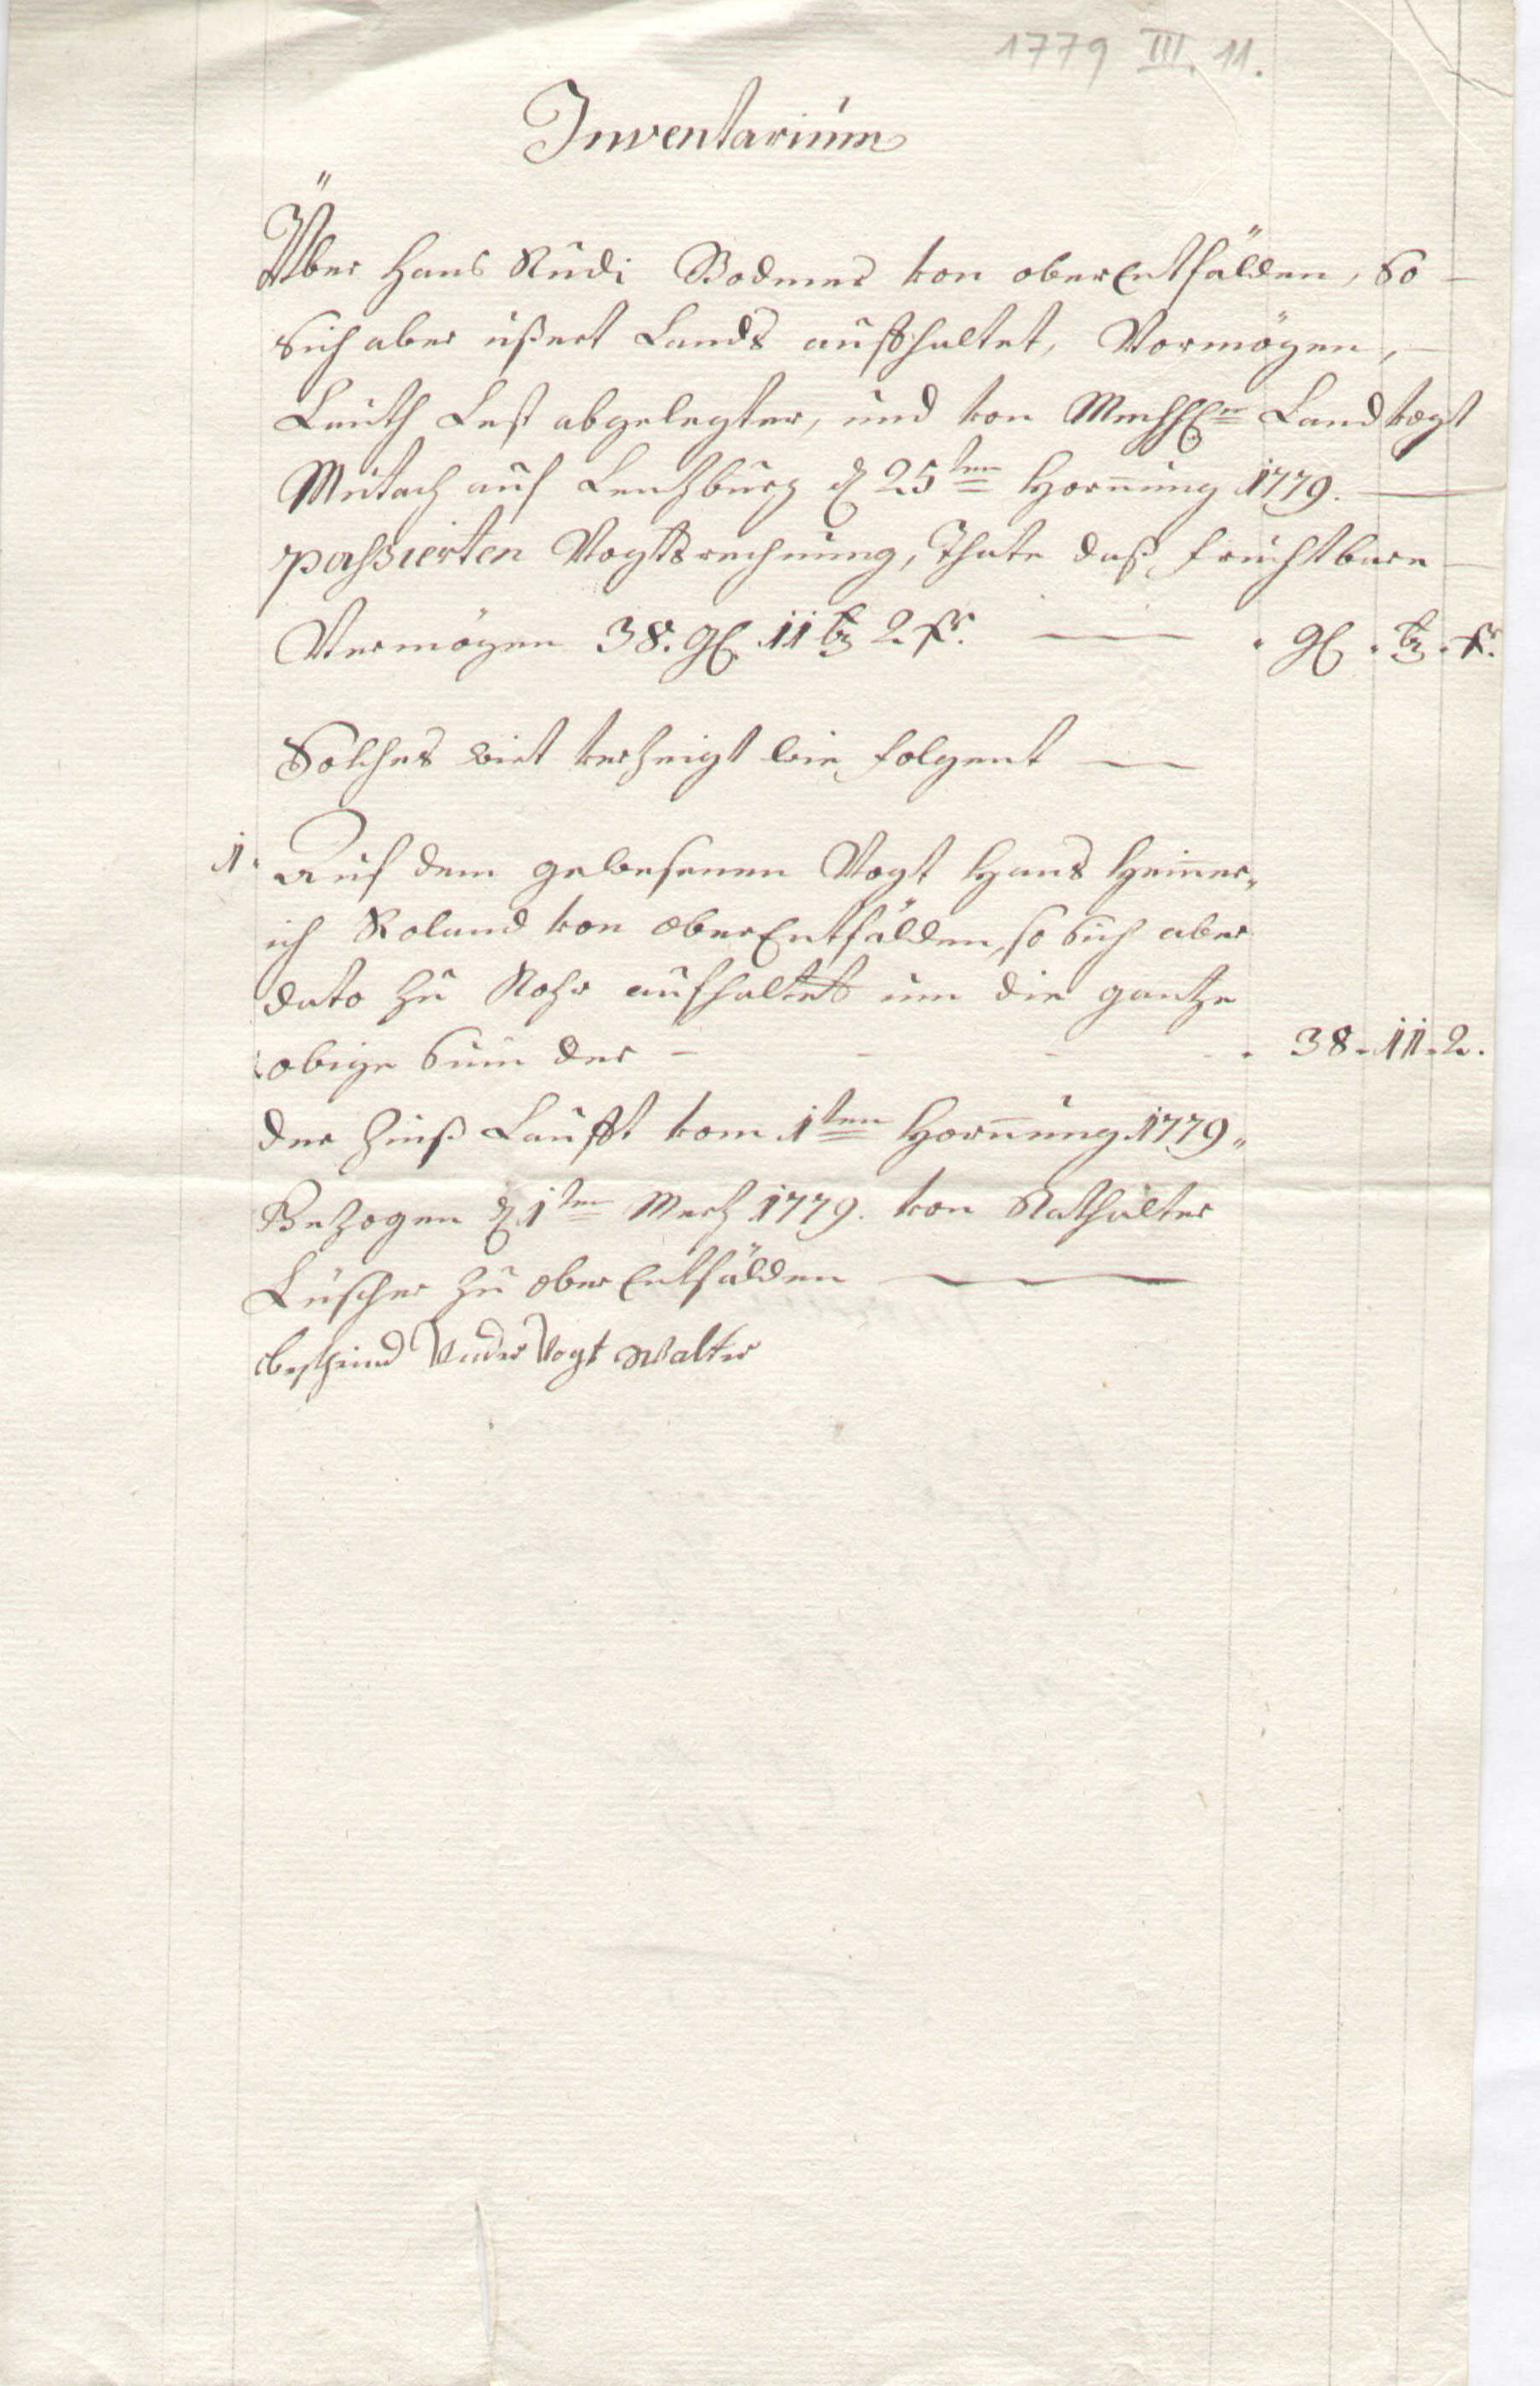 1779 III. 11.
Inventarium
Über Hans Rudi Bodmer von oberEntfälden, So
Sich aber üßert Lands auffhaltet, Vermögen,
Lauth Lest abgelegter, und von MnhhE.n Landvogt
Mutach auf Lentzburg d 25ten Hornung 1779.
passierten Vogtsrechnung, Thate daß fruchtbare
Vermögen 38. gl. 11 bz 2 xr. gl. bz. xr.
Solches wirt verzeigt wie folgent
1. Auf dem gewesenen Vogt Hans Heinner„
ich Roland von OberEntfälden, so Sich aber
dato zu Rohr aufhaltet um die gantze
obige Sum der 38. 11. 2.
der Zinß Laufft vom 1ten Hornung 1779„
Bezogen d 1ten Mertz 1779. von Stathalter
Lüscher zu ober Entfälden
bescheind Under Vogt Walter